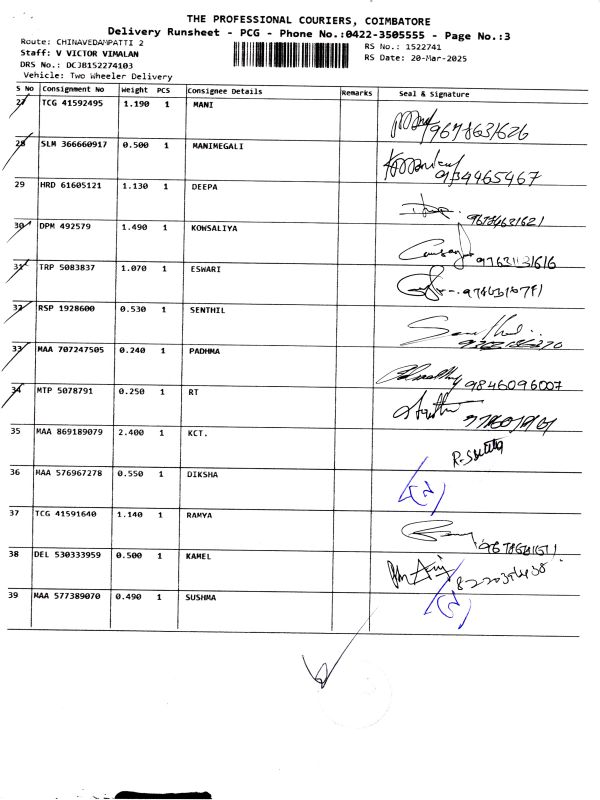 THE PROFESSIONAL COURIERS, COIMBATORE
Delivery Runsheet - PCG - Phone No.:0422-3505555 - Page No.:3
Route: CHINAVEDAMPATTI 2
Staff: V VICTOR VIMALAN
DRS No.: DCJB152274103
Vehicle: Two Wheeler Delivery
RS No.: 1522741
RS Date: 20-Mar-2025
S No Consignment No Weight PCS Consignee Details Remarks Seal & Signature
27 TCG 41592495 1.190 1 MANI
28 SLM 366660917 0.500 1 MANIMEGALI 9134465467
29 HRD 61605121 1.130 1 DEEPA
30 DPM 492579 1.490 1 KOWSALIYA
31 TRP 5083837 1.070 1 ESWARI
32 RSP 1928600 0.530 1 SENTHIL
33 MAA 707247505 0.240 1 PADHMA 9846096007
34 MTP 5078791 0.250 1 RT
35 MAA 869189079 2.400 1 KCT.
36 MAA 576967278 0.550 1 DIKSHA
37 TCG 41591640 1.140 1 RAMYA
38 DEL 530333959 0.500 1 KAMEL
39 MAA 577389070 0.490 1 SUSHMA